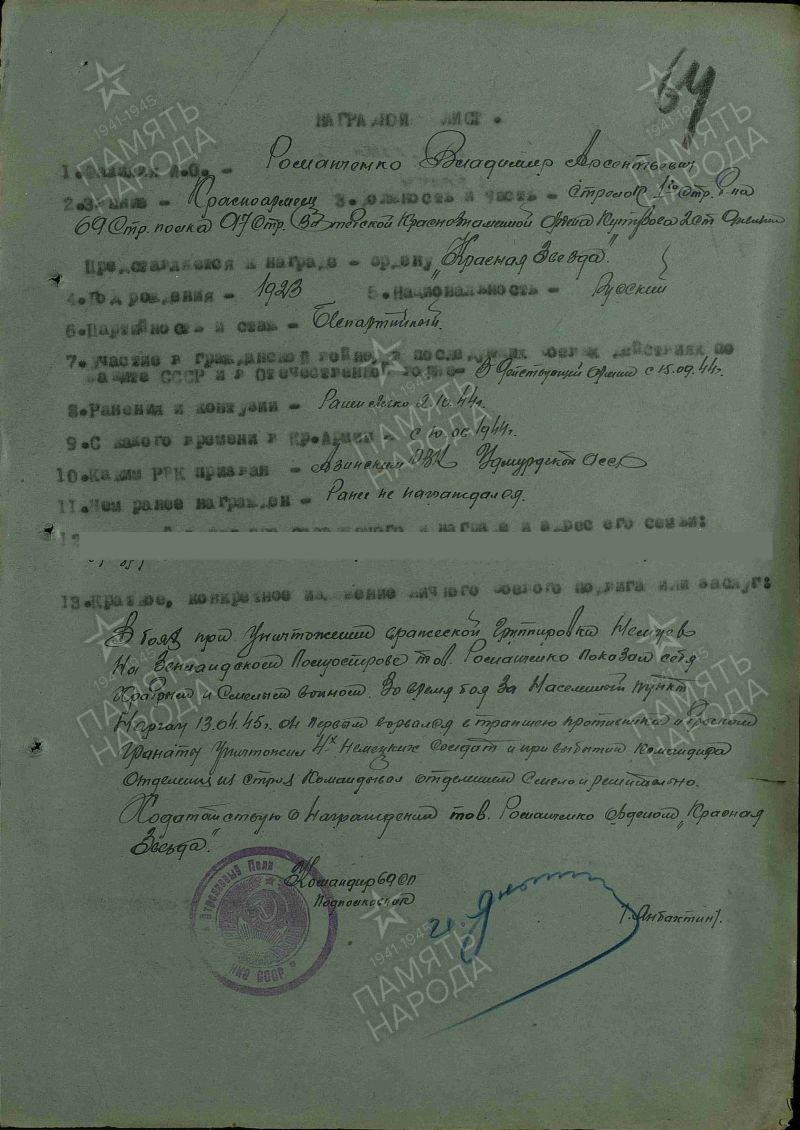 64
НАГРАДНОЙ ЛИСТ.
1. Фамилия И.О. - Романченко Владимир Арсентьевич
2. Звание - Красноармеец 3. Должность и часть - стрелок 1го стр. б-на
69 Стр. полка 97 Стр. Витебской Краснознаменной Ордена Кутузова 2 ст.
Представляется к награде - ордену "Красная Звезда".
4. Год рождения - 1923 5. Национальность - Русский
6. Партийность и стаж - Беспартийный.
7. Участие в гражданской войне и последующих боевых действиях по
защите СССР и в Отечественной войне - В Действующей Армии с 15.09.44г.
8. Ранения и контузии - Ранен легко 2.10.44г.
9. С какого времени в Кр. Армии - с 10.06.1944г.
10. Каким РВК призван - Азинским РВК Удмурдской
11. Чем ранее награжден - Ранее не награждался.
12
13. Краткое, конкретное изложение личного боевого подвига или заслуг:
В боях при уничтожении вражеской группировки Немцев
На Земландском Полуострове тов. Романченко показал себя
Храбрым и смелым воином. Во время боя за Населенный пункт
Наргау 13.04.45г. он первым ворвался в траншею противника и броском
гранаты уничтожил 4х Немецких Солдат и при выбытии Командира
Отделения из строя Командывал отделением Смело и решительно.
Ходатайствую о награждении тов. Романченко орденом „Красная
Звезда".
Командир 69 СП
Подполковник
/.Янбахтин/.
Стрелковый Полк
НКО СССР
1941-1945
ПАМЯТЬ
НАРОДА